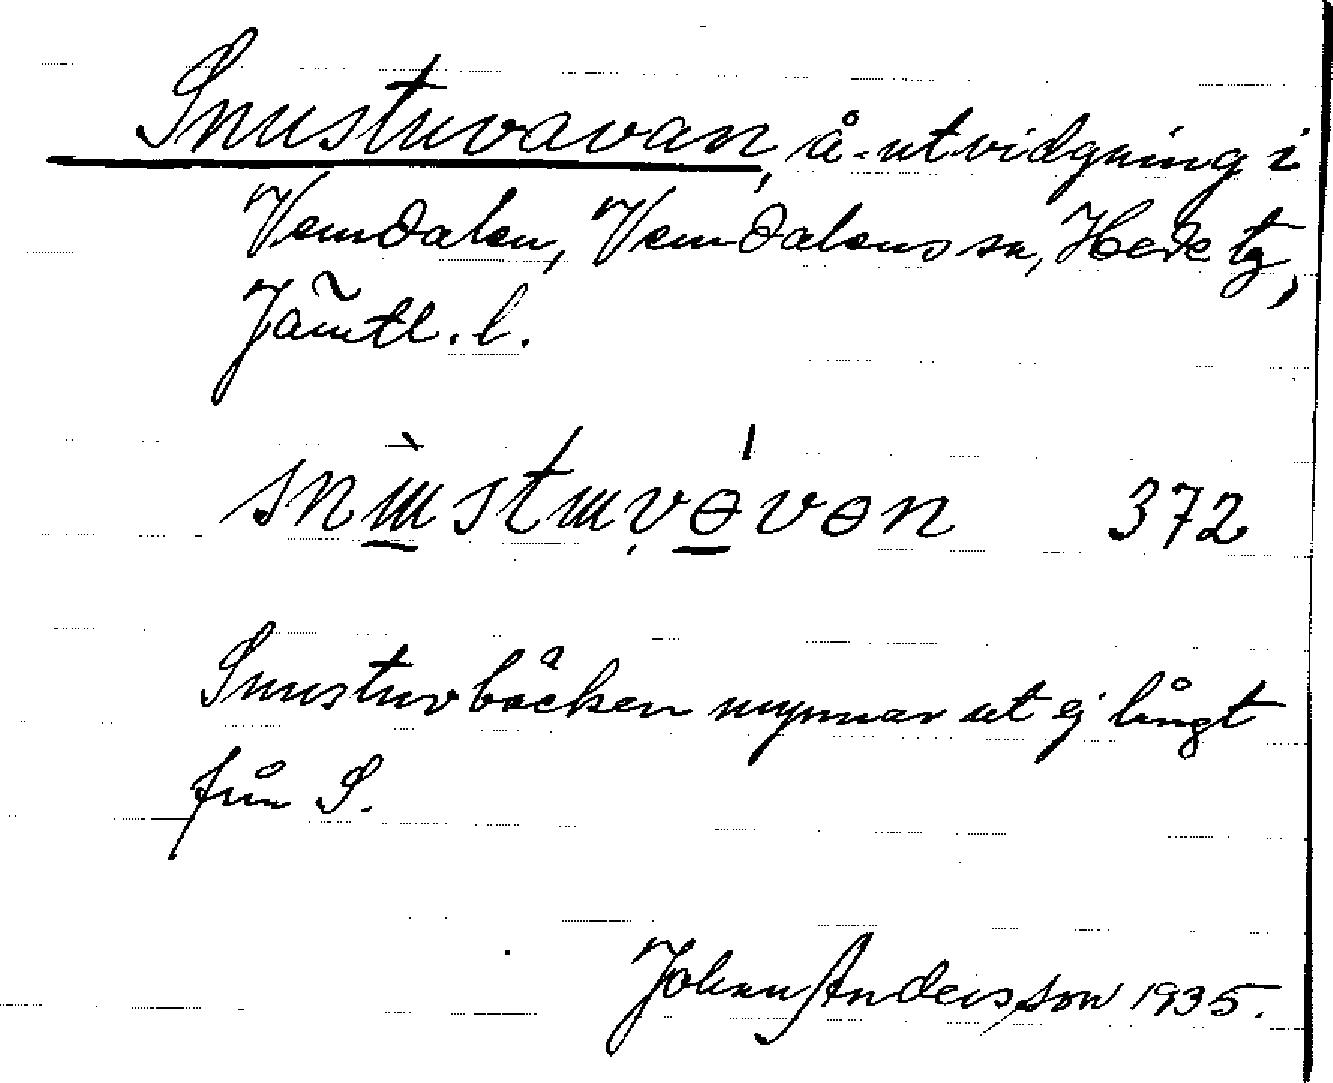 Snustuvavan, å-utvidgning i
Vemdalen, Vemdalens sn, Hede tg,
Jämtl. l.
372
Snustuvbäcken mynnar ut ej långt
från S.
Johan Andersson 1935.